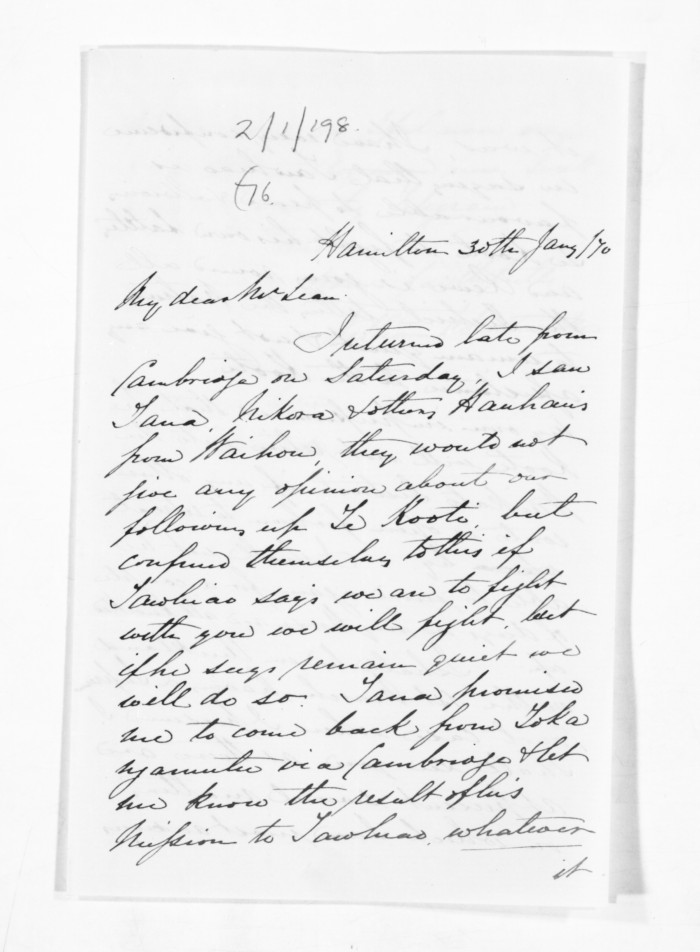 2/1/198.
76.
Hamilton 30th Jany/70
My dear Mr Lean.
I returned late from
Cambridge on Saturday, I saw
Tana, Nikora & others Hauhaus
from Waihou, they would not
give any opinion about our
following up Te Kooti, but
confined themselves to this if
Tawhiao says we are to fight
with you we will fight, but
if he says remain quiet we
will do so. Tana promised
me to come back from Toka
ngamutu via Cambridge & let
me know the result of his
Mission to Tawhiao, whatever
it